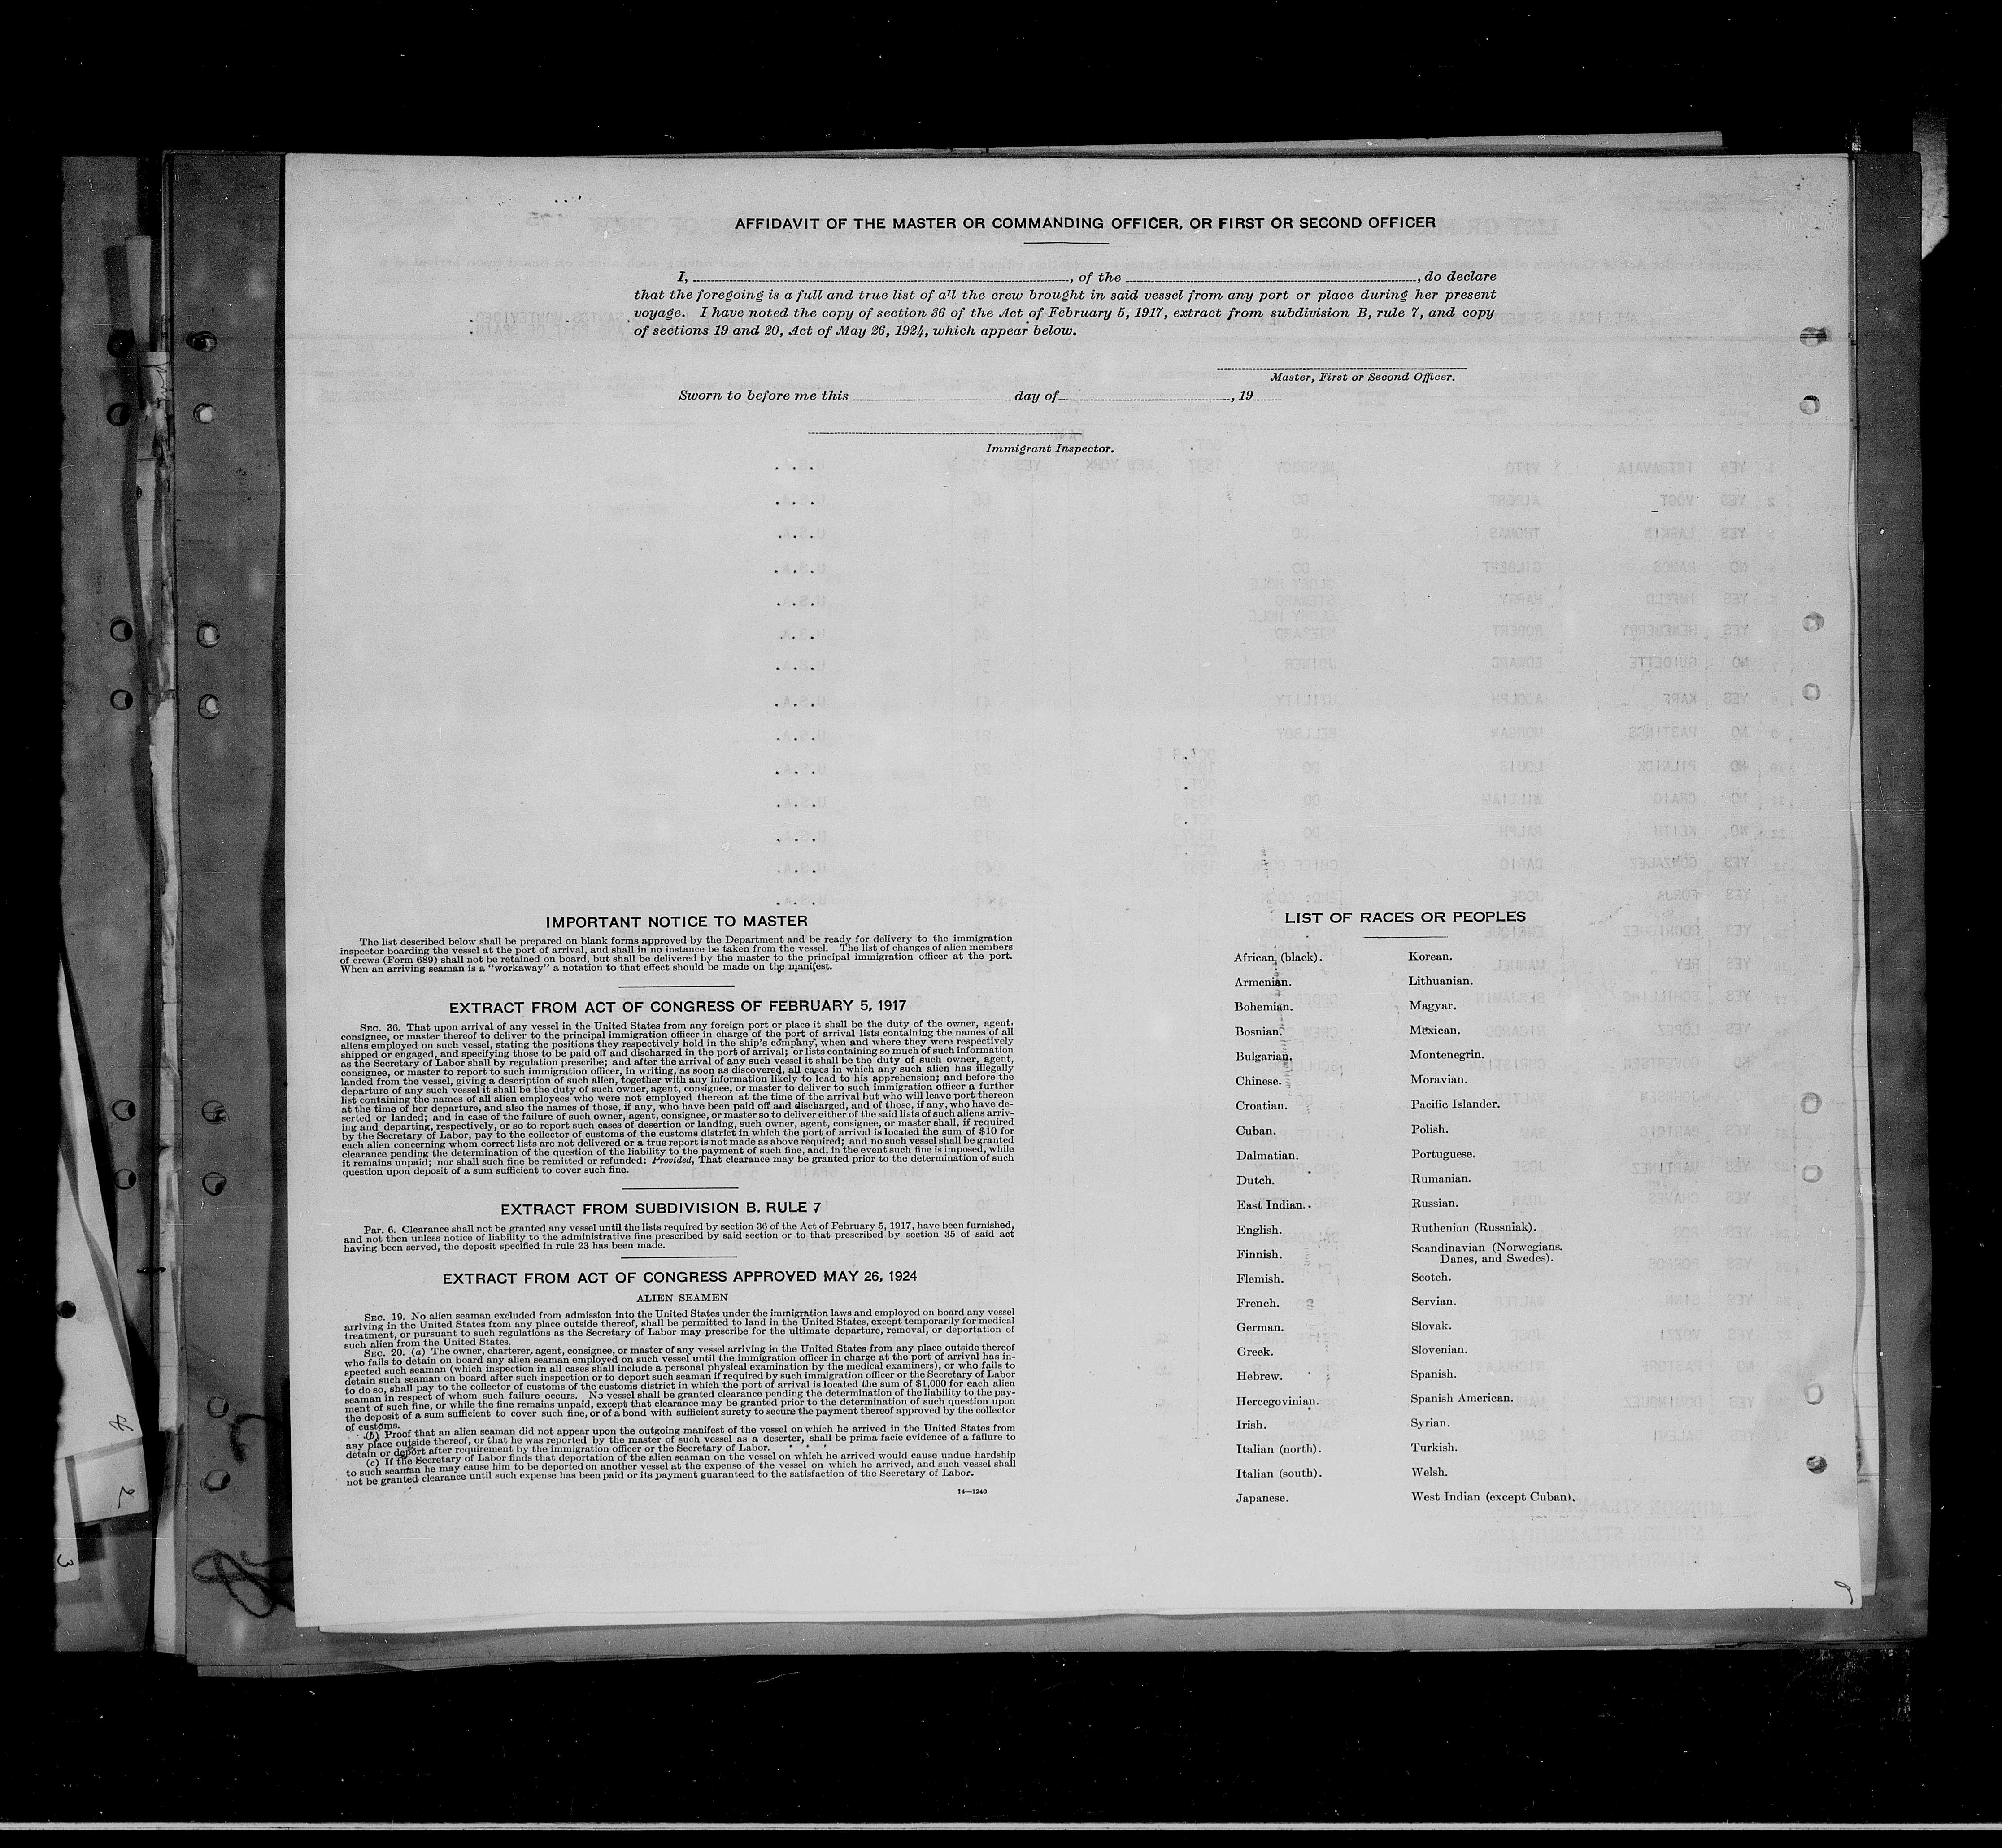 AFFIDAVIT OF THE MASTER OR COMMANDING OFFICER, OR FIRST OR SECOND OFFICER
I, , of the , do declare
that the foregoing is a full and true list of all the crew brought in said vessel from any port or place during her present
voyage. I have noted the copy of section 36 of the Act of February 5, 1917, extract from subdivision B, rule 7, and copy
of sections 19 and 20, Act of May 26, 1924, which appear below.
Master, First or Second Officer.
Sworn to before me this day of , 19
Immigrant Inspector.
IMPORTANT NOTICE TO MASTER
The list described below shall be prepared on blank forms approved by the Department and be ready for delivery to the immigration
inspector boarding the vessel at the port of arrival, and shall in no instance be taken from the vessel. The list of changes of alien members
of crews (Form 689) shall not be retained on board, but shall be delivered by the master to the principal immigration officer at the port.
When an arriving seaman is a "workaway" a notation to that effect should be made on the manifest.
EXTRACT FROM ACT OF CONGRESS OF FEBRUARY 5, 1917
SEC. 36. That upon arrival of any vessel in the United States from any foreign port or place it shall be the duty of the owner, agent,
consignee, or master thereof to deliver to the principal immigration officer in charge of the port of arrival lists containing the names of all
aliens employed on such vessel, stating the positions they respectively hold in the ship's company, when and where they were respectively
shipped or engaged, and specifying those to be paid off and discharged in the port of arrival; or lists containing so much of such information
as the Secretary of Labor shall by regulation prescribe; and after the arrival of any such vessel it shall be the duty of such owner, agent,
consignee, or master to report to such immigration officer, in writing, as soon as discovered, all cases in which any such alien has illegally
landed from the vessel, giving a description of such alien, together with any information likely to lead to his apprehension; and before the
departure of any such vessel it shall be the duty of such owner, agent, consignee, or master to deliver to such immigration officer a further
list containing the names of all alien employees who were not employed thereon at the time of the arrival but who will leave port thereon
at the time of her departure, and also the names of those, if any, who have been paid off and discharged, and of those, if any, who have de-
serted or landed; and in case of the failure of such owner, agent, consignee, or master so to deliver either of the said lists of such aliens arriv-
ing and departing, respectively, or so to report such cases of desertion or landing, such owner, agent, consignee, or master shall, if required
by the Secretary of Labor, pay to the collector of customs of the customs district in which the port of arrival is located the sum of $10 for
each alien concerning whom correct lists are not delivered or a true report is not made as above required; and no such vessel shall be granted
clearance pending the determination of the question of the liability to the payment of such fine, and, in the event such fine is imposed, while
it remains unpaid; nor shall such fine be remitted or refunded: Provided, That clearance may be granted prior to the determination of such
question upon deposit of a sum sufficient to cover such fine.
EXTRACT FROM SUBDIVISION B, RULE 7
Par. 6. Clearance shall not be granted any vessel until the lists required by section 36 of the Act of February 5, 1917, have been furnished,
and not then unless notice of liability to the administrative fine prescribed by said section or to that prescribed by section 35 of said act
having been served, the deposit specified in rule 23 has been made.
EXTRACT FROM ACT OF CONGRESS APPROVED MAY 26, 1924
ALIEN SEAMEN
SEC. 19. No alien seaman excluded from admission into the United States under the immigration laws and employed on board any vessel
arriving in the United States from any place outside thereof, shall be permitted to land in the United States, except temporarily for medical
treatment, or pursuant to such regulations as the Secretary of Labor may prescribe for the ultimate departure, removal, or deportation of
such alien from the United States.
SEC. 20. (a) The owner, charterer, agent, consignee, or master of any vessel arriving in the United States from any place outside thereof
who fails to detain on board any alien seaman employed on such vessel until the immigration officer in charge at the port of arrival has in-
spected such seaman (which inspection in all cases shall include a personal physical examination by the medical examiners), or who fails to
detain such seaman on board after such inspection or to deport such seaman if required by such immigration officer or the Secretary of Labor
to do so, shall pay to the collector of customs of the customs district in which the port of arrival is located the sum of $1,000 for each alien
seaman in respect of whom such failure occurs. No vessel shall be granted clearance pending the determination of the liability to the pay-
ment of such fine, or while the fine remains unpaid, except that clearance may be granted prior to the determination of such question upon
the deposit of a sum sufficient to cover such fine, or of a bond with sufficient surety to secure the payment thereof approved by the collector
of customs.
(b) Proof that an alien seaman did not appear upon the outgoing manifest of the vessel on which he arrived in the United States from
any place outside thereof, or that he was reported by the master of such vessel as a deserter, shall be prima facie evidence of a failure to
detain or deport after requirement by the immigration officer or the Secretary of Labor.
(c) If the Secretary of Labor finds that deportation of the alien seaman on the vessel on which he arrived would cause undue hardship
to such seaman he may cause him to be deported on another vessel at the expense of the vessel on which he arrived, and such vessel shall
not be granted clearance until such expense has been paid or its payment guaranteed to the satisfaction of the Secretary of Labor.
14—1240
LIST OF RACES OR PEOPLES
African (black).
Armenian.
Bohemian.
Bosnian.
Bulgarian.
Chinese.
Croatian.
Cuban.
Dalmatian.
Dutch.
East Indian.
English.
Finnish.
Flemish.
French.
German.
Greek.
Hebrew.
Hercegovinian.
Irish.
Italian (north).
Italian (south).
Japanese.
Korean.
Lithuanian.
Magyar.
Mexican.
Montenegrin.
Moravian.
Pacific Islander.
Polish.
Portuguese.
Rumanian.
Russian.
Ruthenian (Russniak).
Scandinavian (Norwegians,
Danes, and Swedes).
Scotch.
Servian.
Slovak.
Slovenian.
Spanish.
Spanish American.
Syrian.
Turkish.
Welsh.
West Indian (except Cuban).
4
2
3